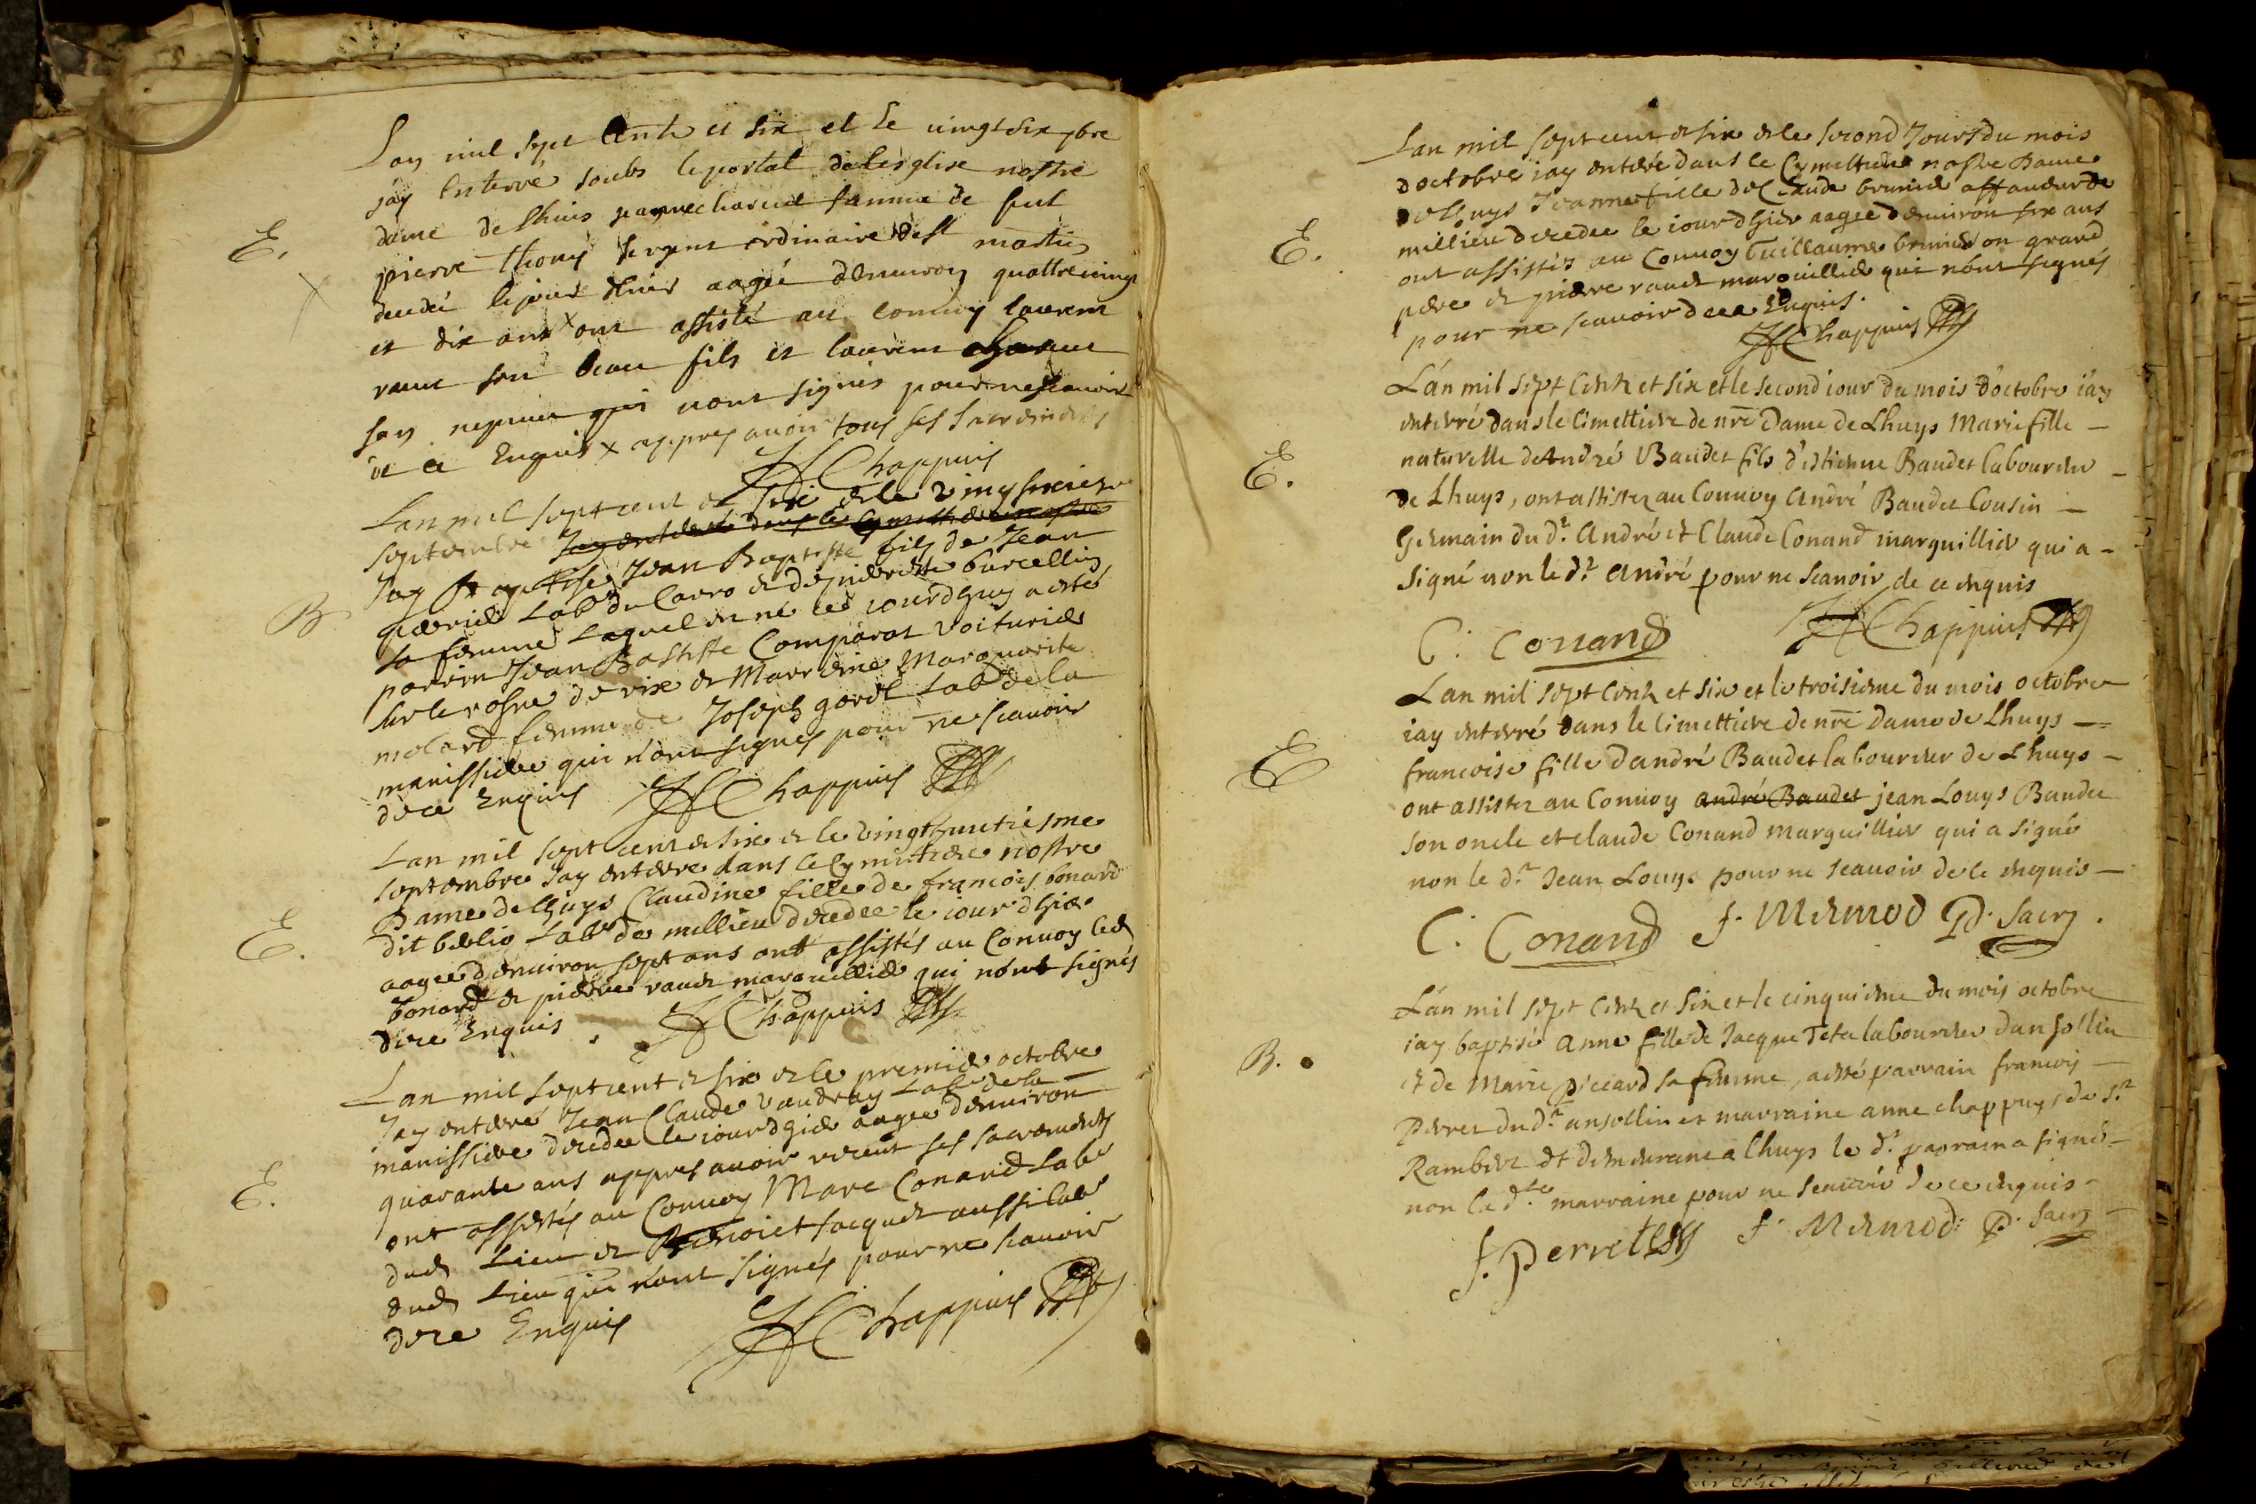 Lan mil sept cents et six et le vingt six 7bre
jay enterré soubs le portal de lesglise nostre
dame de Lhuis
pierre thomy sergent ordinaire de St martin
decedé le jour dhier aagée denviron quattrevingt
et dix ans x ont assisté au convoy laurent
son beau fils et laurent
son nepveu qui nont signés pour ne scavoir
de ce Enquis x appres avoir tous ses sacrements
E.
JF Chappuis
Lan mil sept cent et six et le vingt sixiesme
septembre Jay enterré dans le cymettiere nostre
Jay Baptisé Jean Baptiste fils de Jean
Labr du Carro et de pierrette burcelling
sa femme Lequel est né ce jourdhuy a esté
parrin Jean Batiste Comparat voiturier
sur le rosne de vix et Marreine Marguerite
molard femme de Joseph godet Labr de la
manissiere qui nont signés pour ne scavoir
de ce Enquis JF Chappuis
B
Lan mil sept cent et six et le vingthuictiesme
septembre Jay enterre dans le Cymittiere nostre
Dame de lhuys Claudine fille de francois bonard
dit Labr de millieu decedee le jour dhier
aagee denviron sept ans ont assistés au Convoy led
bonard et pierre vaudt marguillier qui nont signés
de ce Enquis. JF Chappuis
E.
Lan mil sept cent et six et le premier octobre
Jay enterré Jean Claude vaudray Labr de la
manissiere decedee le jour dhier aagee denviron
quarante ans appres avoir receut ses sacrements
ont assistés au Convoy Marc Conand Labr
dud Lieu et Benoict Jacquet aussi labr
dud Lieu qui nont signés pour ne scavoir
de ce Enquis JF Chappuis
E.
Lan mil sept cent et six et le second Jour du mois
doctobre jay enterré dans le Cymettiere nostre Dame
de Lhuys Jeanne fille de Claude brunier affaneur de
millieu decedee le jour dhier aagee denviron six ans
ont assistés au Convoy Guillaume brunier son grand
pere et pierre vaudt marguillier qui nont signés
pour ne scavoir de ce Enquis.
JF Chappuis
E.
Lán mil sept Cents et six et le second jour du mois d'octobre i'ay
enterré dans le Cimettiere de nre Dame de Lhuys Marie fille –
naturelle de André Baudet fils d'estienne Baudet laboureur –
de Lhuys, ont assistez au Convoy André Baudet Cousin –
Germain du dt. André et Claude Conand marguillier qui a –
signé non le dt. André pour ne scavoir de ce enquis
C. Conand JF Chappuis
E.
Lan mil sept Cents et six et le troisieme du mois octobre
iay enterré dans le Cimettiere de nre Dame de Lhuys –
francoise fille d'andré Baudet laboureur de Lhuys –
ont assistez au Convoy andré Baudet jean Louys Baudet
son oncle et claude Conand marguillier qui a signé
non le dt. Jean Louys pour ne scavoir de ce enquis –
C. Conand f. Mermod P. sacrj.
E
Lán mil sept Cents et six et le cinquieme du mois octobre
iay baptisé Anne fille de Jacque Tete laboureur dansollin
et de Marie piccard sa femme, a esté parrain francois –
Perret du dt. ansollin et marraine anne chappuys de St.
Rambert et demeurant a lhuys le dt. parrain a signé –
non la dte. marraine pour ne scavoir de ce enquis –
f. Perret f. Mermod: P. sacrj –
B.